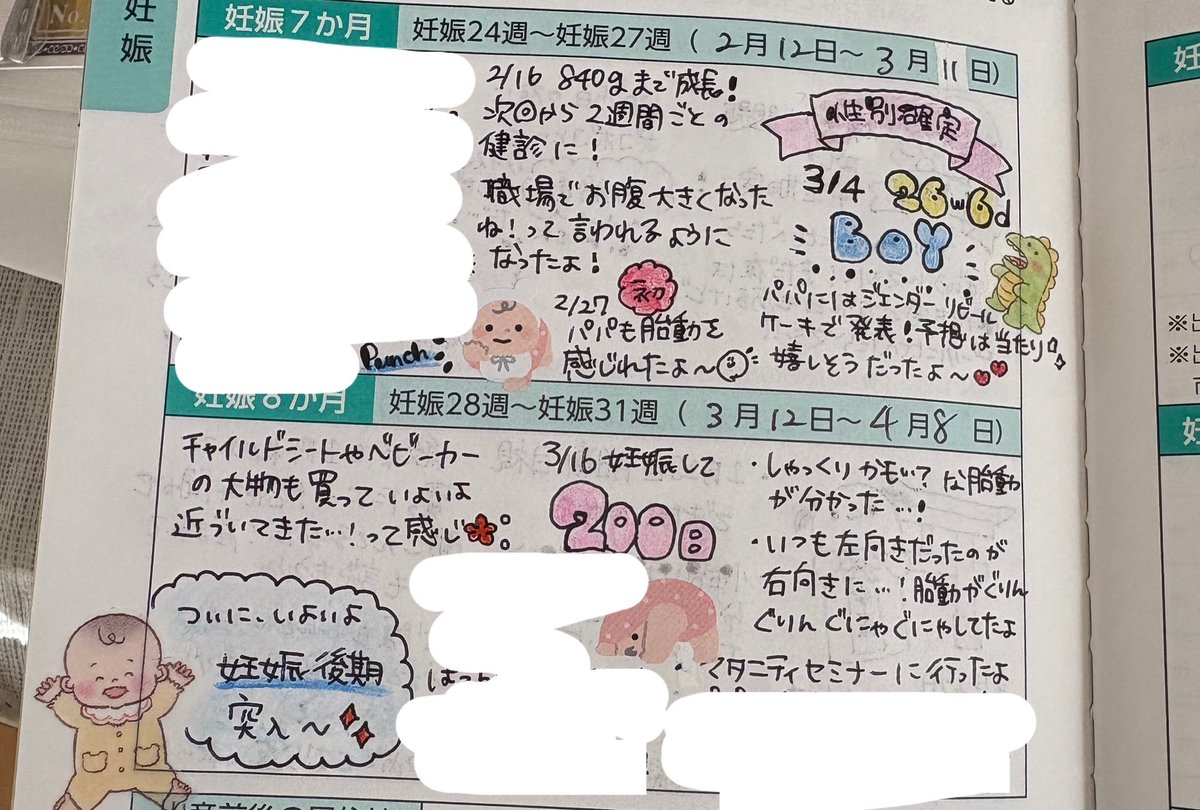 No.
妊娠
妊娠7か月
妊娠24週～妊娠27週 ( 2月12日～ 3月11日)
2/16 840gまで成長!
次回から2週間ごとの
健診に!
職場でお腹大きくなった
ね!って言われるように
なったよ!
2/27 初
パパも胎動を
感じれたよ～
Punch
性別確定
3/4 26w6d
BOY
パパにはジェンダーリビール
ケーキで発表!予想は当たり♪
嬉しそうだったよ～
妊娠8か月
妊娠28週～妊娠31週 ( 3月12日～4月8日)
チャイルドシートやベビーカー
の大物も買っていよいよ
近づいてきた…!って感じ
ついに、いよいよ
妊娠後期
突入～
3/16 妊娠して
200日
・しゃっくりかも…?な胎動
が分かった…!
・いつも左向きだったのが
右向きに…!胎動がぐりん
ぐりんぐにゃぐにゃしてたよ
・マタニティセミナーに行ったよ
妊
※
※
妊